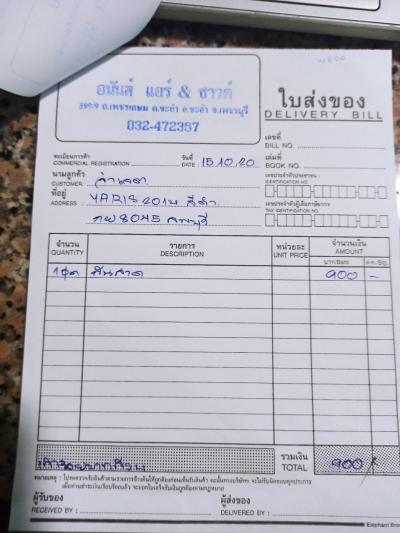 อนันต์ แอร์ & ซาวด์
599/9 ถ.เพชรเกษม ต.ชะอำ อ.ชะอำ จ.เพชรบุรี
032-472387
ใบส่งของ
DELIVERY BILL
เลขที่
BILL NO.
ทะเบียนการค้า
COMMERCIAL REGISTRATION
วันที่
DATE 15.10.20
เล่มที่
BOOK NO.
นามลูกค้า
CUSTOMER
เลขประจำตัวประชาชน
IDENTIFICATION NO.
ที่อยู่
ADDRESS : YARIS 2014 สีดำ
เลขประจำตัวผู้เสียภาษีอากร
TAX IDENTIFICATION NO.
8045
จำนวน
QUANTITY
รายการ
DESCRIPTION
หน่วยละ
UNIT PRICE
จำนวนเงิน
AMOUNT
บาท/Baht
ส.ต./Stg.
1ชุด 900 -
รวมเงิน
TOTAL 900
หมายเหตุ : โปรดตรวจรับสินค้าตามรายการข้างต้นให้ถูกต้องก่อนเซ็นรับสินค้า
ผู้รับของ
RECEIVED BY :
ผู้ส่งของ
DELIVERED BY :
Elephant